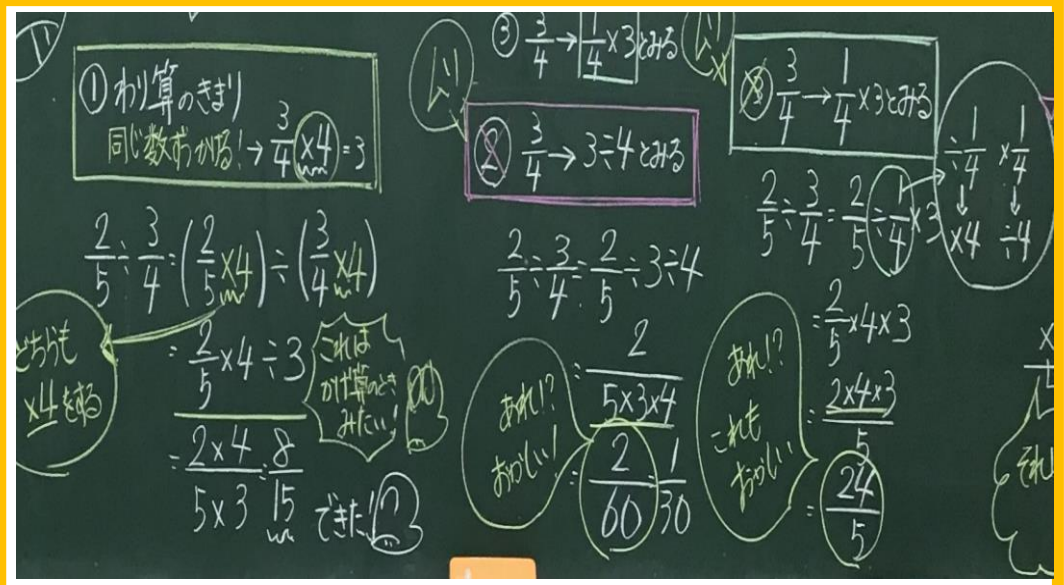 ① わり算のきまり
同じ数ずつかける!→ 3/4 ×4 = 3
2/5 ÷ 3/4 = (2/5 ×4) ÷ (3/4 ×4)
どちらも
×4をする
= 2/5 ×4÷3
これは
かけ算のとき
みたい!
= 2×4/5×3 = 8/15
できた!
③ 3/4 → 1/4 ×3とみる
② 3/4 → 3÷4とみる
2/5 ÷ 3/4 = 2/5 ÷3÷4
= 2/5×3×4
あれ!?
おかしい!
= 2/60 = 1/30
③ 3/4 → 1/4 ×3とみる
2/5 ÷ 3/4 = 2/5 ÷ 1/4 ×3
÷ 1/4 × 1/4
↓ ↓
×4 ÷4
= 2/5 ×4×3
あれ!?
これも
おかしい
= 2×4×3/5
= 24/5
それ